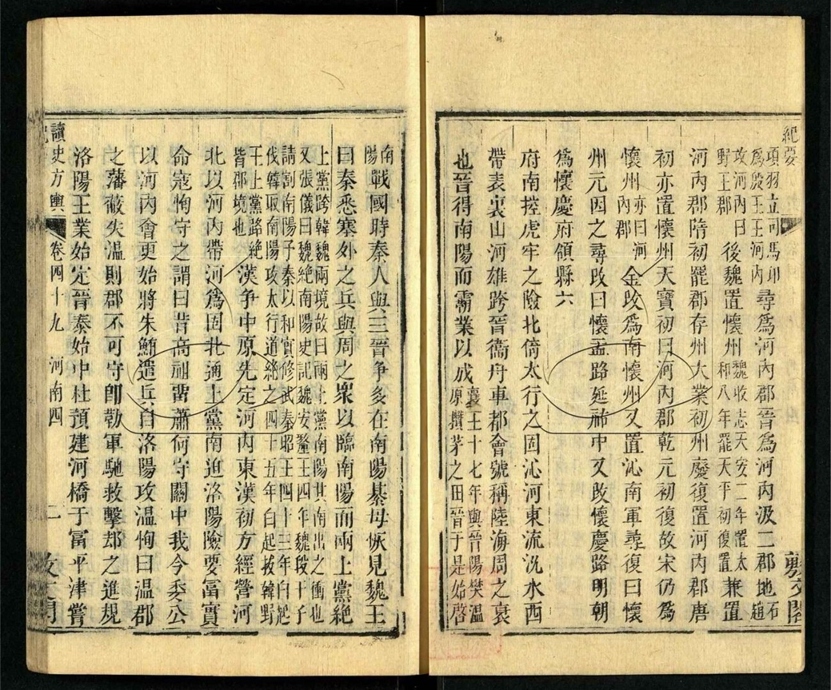 紀要
項羽立司馬卬
為殷王王河內
尋爲河內郡晉爲河內汲二郡地
石趙
攻河內曰
野王郡
後魏置懷州
魏收志天安二年置太
和八年罷天平初復置
兼置
河內郡隋初罷郡存州大業初州廢復置河內郡唐
初亦置懷州天寶初曰河內郡乾元初復故宋仍爲
懷州
亦曰河
內郡
金改爲南懷州又置沁南軍尋復曰懷
州元因之尋改曰懷孟路延祐中又改懷慶路明朝
爲懷慶府領縣六
府南控虎牢之險北倚太行之固沁河東流沇水西
帶表裏山河雄跨晉衞舟車都會號稱陸海周之衰
也晉得南陽而霸業以成
襄王十七年與晉陽樊溫
原攢茅之田晉于是始啓
南
陽
戰國時秦人與三晉爭多在南陽綦母恢見魏王
曰秦悉塞外之兵與周之衆以臨南陽而兩上黨絕
上黨跨韓魏兩境故曰兩上黨南陽其南出之衝也
又張儀曰魏絕南陽史記魏安釐王四年魏段干子
請割南陽予秦以和實修武秦昭王四十三年白起
伐韓取南陽攻太行道絕之四十五年白起拔韓野
王上黨路絕
皆郡境也
漢爭中原先定河內東漢初方經營河
北以河內帶河爲固北通上黨南迫洛陽險要富實
命寇恂守之謂曰昔高祖畱蕭何守關中我今委公
以河內會更始將朱鮪遣兵自洛陽攻溫恂曰溫郡
之藩蔽失溫則郡不可守卽勒軍馳救擊却之進規
洛陽王業始定晉泰始中杜預建河橋于富平津嘗
讀史方輿
卷四十九 河南四
二